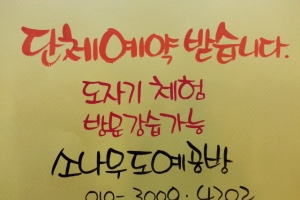 단체예약 받습니다.
도자기 체험
방문강습가능
소나무도예공방
010-3009·4203